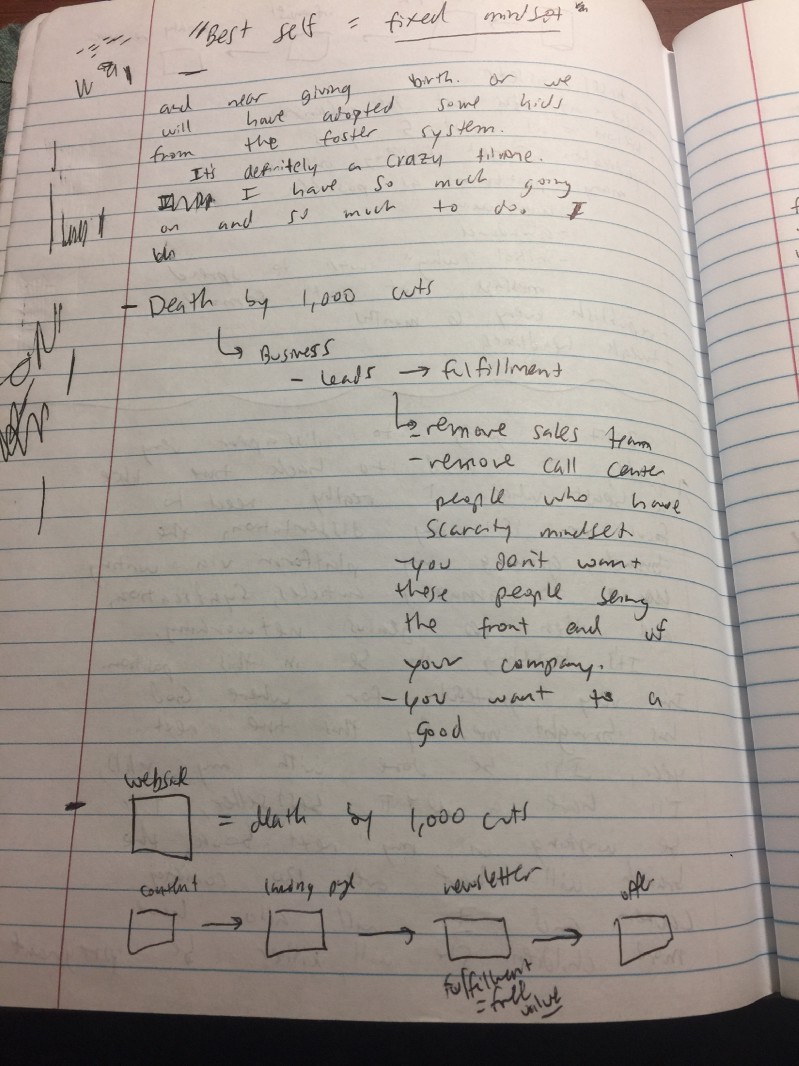 "Best self = fixed mindset"
and near giving birth. or we
will have adopted some kids
from the foster system.
It's definitely a crazy
I have so much going
on and so much to do. I
- Death by 1,000 cuts
Business
- Leads → fulfillment
- remove sales team
- remove call center
people who have
scarcity mindset
- you don't want
these people being
the front end of
your company.
- you want to a
good
website
- = death by 1,000 cuts
content → landing page → newsletter → offer
fulfillment
= free
value